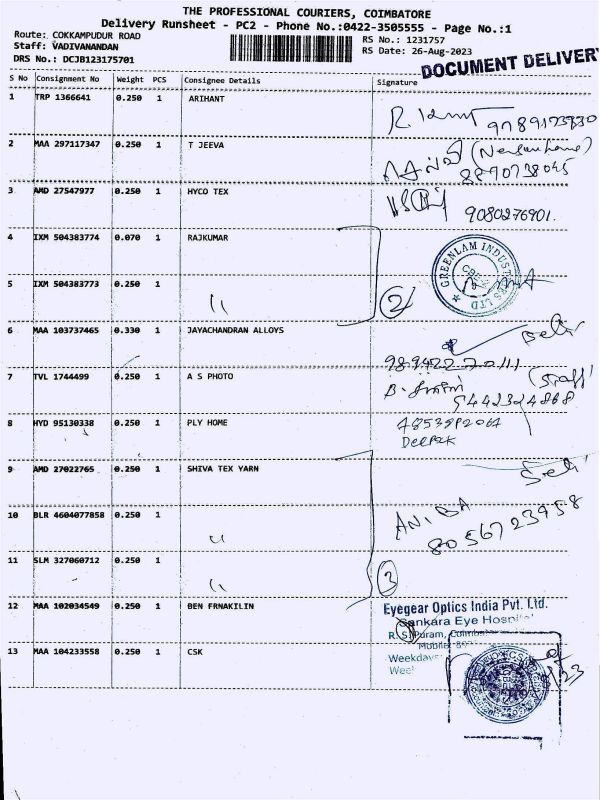 THE PROFESSIONAL COURIERS, COIMBATORE
Delivery Runsheet - PC2 - Phone No.:0422-3505555 - Page No.:1
Route: COKKAMPUDUR ROAD
RS No.: 1231757
Staff: VADIVANANDAN
RS Date: 26-Aug-2023
DRS No.: DCJB123175701
DOCUMENT DELIVERY
S No Consignment No Weight PCS Consignee Details Signature
1 TRP 1366641 0.250 1 ARIHANT
9789123930
2 MAA 297117347 0.250 1 T JEEVA
8890738045
3 AMD 27547977 0.250 1 HYCO TEX
9080276901.
4 IXM 504383774 0.070 1 RAJKUMAR
GREENLAM INDUSTRIES LTD
5 IXM 504383773 0.250 1 "
2
6 MAA 103737465 0.330 1 JAYACHANDRAN ALLOYS
989422 70111
7 TVL 1744499 0.250 1 A S PHOTO
(Staff)
9442324868
8 HYD 95130338 0.250 1 PLY HOME
DEEPAK
9 AMD 27022765 0.250 1 SHIVA TEX YARN
10 BLR 4604077858 0.250 1 "
8056723958
11 SLM 327060712 0.250 1 "
3
12 MAA 102034549 0.250 1 BEN FRNAKILIN
Eyegear Optics India Pvt. Ltd.
Sankara Eye Hospital
R.S. Puram,
Mobile:
13 MAA 104233558 0.250 1 CSK
Weekdays